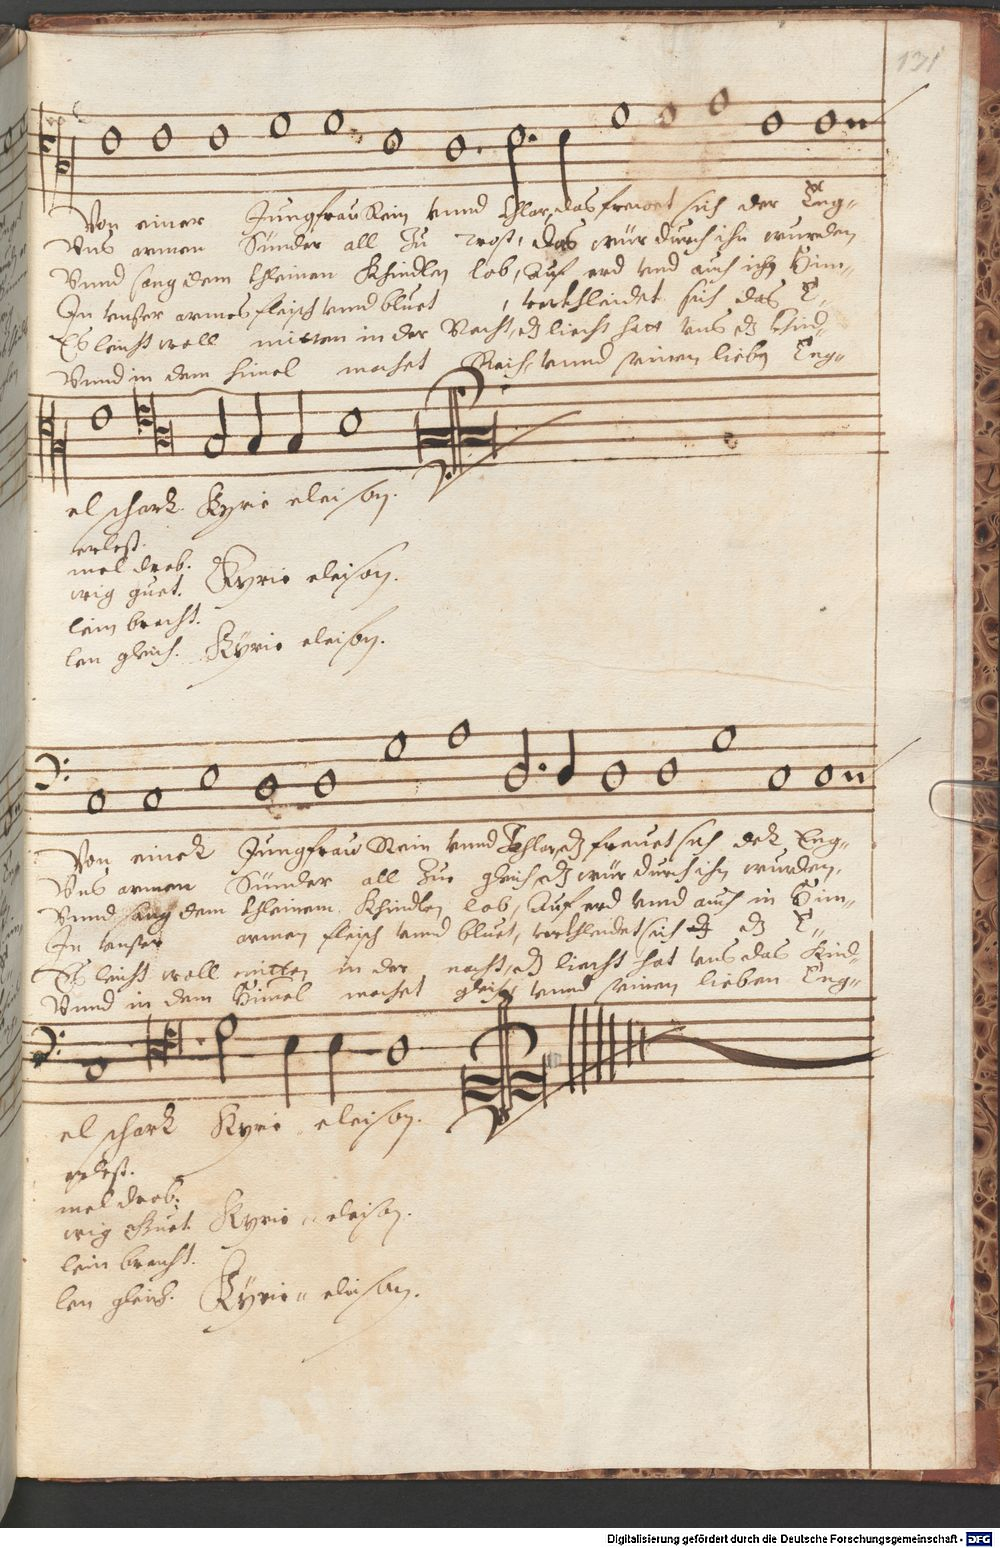 131
Von einer Jungfrau Rein vnnd khlar, das freuuet sich der Eng=
Vns armen Sünder all zu trost, das wür durch ihn wurden
Vnnd sang dem khleinen Khindlen lob, Auf erd vnd auch ich Him=
In vnser armes fleisch vnnd bluet, verkhleidet sich das E=
Es leicht woll mitten in der Nacht, dz liecht hatt vns dz Khind=
Vnnd in dem himel machet Reich, vnnd seinen lieben Eng=
el schark. Kyrie eleison.
erlest.
mel drob. Kyrie eleison.
wig guet.
lein bracht.
len gleich. Kÿrie eleison.
Von einer Jungfrau Rein vnnd khlar, dz freuet sich der Eng=
Vns armen Sünder all zue gleich, dz wür durch ihn wurden,
Vnnd sang dem khleinem Khindlen lob, Auf erd vnnd auch in Him=
In vnser armen fleisch vnnd bluet, verkhleidet sich dz E=
Es leicht woll mitten in der nacht, dz liecht hat vns das Kind=
Vnnd in dem Himel machet gleich, vnnd seinen lieben Eng=
el schark Kyrie eleison.
erlest.
mel drob. Kyrie eleison.
wig Guet.
lein bracht.
len gleich. Kÿrie eleison.
Digitalisierung gefördert durch die Deutsche Forschungsgemeinschaft - DFG